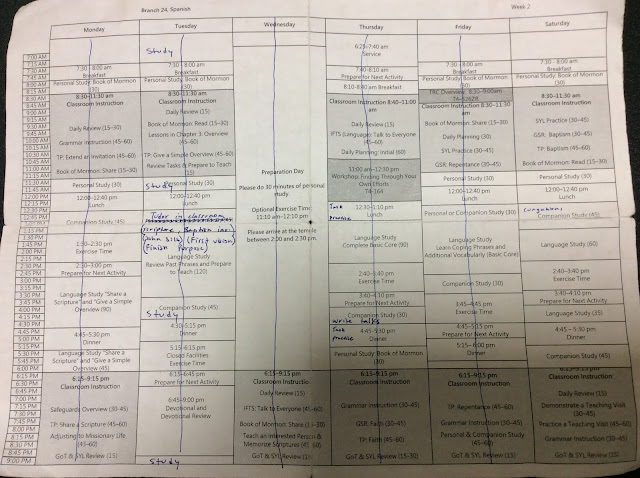 Branch 24, Spanish
Week 2
Monday
Tuesday
Wednesday
Thursday
Friday
Saturday
7:00 AM
7:15 AM
7:30 AM
7:45 AM
8:00 AM
8:15 AM
8:30 AM
8:45 AM
9:00 AM
9:15 AM
9:30 AM
9:45 AM
10:00 AM
10:15 AM
10:30 AM
10:45 AM
11:00 AM
11:15 AM
11:30 AM
11:45 AM
12:00 PM
12:15 PM
12:30 PM
12:45 PM
1:15 PM
1:30 PM
1:45 PM
2:00 PM
2:15 PM
2:30 PM
2:45 PM
3:00 PM
3:15 PM
3:30 PM
3:45 PM
4:00 PM
4:15 PM
4:30 PM
4:45 PM
5:00 PM
5:15 PM
5:30 PM
5:45 PM
6:00 PM
6:15 PM
6:30 PM
6:45 PM
7:00 PM
7:15 PM
7:30 PM
7:45 PM
8:00 PM
8:15 PM
8:30 PM
8:45 PM
9:00 PM
7:30 - 8:00 am
Breakfast
Personal Study: Book of Mormon
(30)
8:30–11:30 am
Classroom Instruction
Daily Review (15–30)
Grammar Instruction (45–60)
TP: Extend an Invitation (45–60)
Book of Mormon: Share (15–30)
Personal Study (30)
12:00–12:40 pm
Lunch
Companion Study (45)
1:30–2:30 pm
Exercise Time
2:30–3:00 pm
Prepare for Next Activity
Language Study "Share a
Scripture" and "Give a Simple
Overview (90)
4:45–5:30 pm
Dinner
Language Study "Share a
Scripture" and "Give a Simple
Overview (45)
6:15–9:15 pm
Classroom Instruction
Safeguards Overview (30-45)
TP: Share a Scripture (45–60)
Adjusting to Missionary Life
(45–60)
GoT & SYL Review (15)
Study
7:30 - 8:00 am
Breakfast
Personal Study: Book of Mormon
(30)
8:30–11:30 am
Classroom Instruction
Daily Review (15)
Book of Mormon: Read (15–30)
Lessons in Chapter 3: Overview
(45–60)
TP: Give a Simple Overview (45–60)
Review Tasks & Prepare to Teach
(15)
Study
Personal Study (30)
12:00–12:40 pm
Lunch
Tudor in classroom
scripture, Baptism inv.
(First vision)
(Finish purpose)
Language Study
Review Past Phrases and Prepare
to Teach (120)
Companion Study (45)
Study
4:30-5:15 pm
Dinner
5:15–6:15 pm
Closed Facilities
Exercise Time
6:15–6:45 pm
Prepare for Next Activity
6:45–9:00 pm
Devotional and
Devotional Review
Study
Preparation Day
Please do 30 minutes of personal
study.
Optional Exercise Time:
11:10 am–12:10 pm
Please arrive at the temple
between 2:00 and 2:30 pm.
6:15–9:15 pm
Classroom Instruction
Daily Review (15)
IFTS: Talk to Everyone (45–60)
Book of Mormon: Share (15–30)
Teach an Interested Person &
Memorize Scriptures (45–60)
GoT & SYL Review (15)
6:25–7:40 am
Service
7:40–8:10 am
Prepare for Next Activity
8:10-8:40 am Breakfast
Classroom Instruction 8:40–11:00
am
Daily Review (15)
IFTS (Language): Talk to Everyone
(45–60)
Daily Planning: Initial (60)
11:00 am–12:30 pm
Workshop: Finding Through Your
Own Efforts
T4-164
Task
practice
12:30–1:10 pm
Lunch
Language Study
Complete Basic Core (90)
2:40–3:40 pm
Exercise Time
3:40–4:10 pm
Prepare for Next Activity
Companion Study (30)
write talks
Task
practice
4:45-5:30 pm
Dinner
Personal Study: Book of Mormon
(30)
6:15–9:15 pm
Classroom Instruction
Grammar Instruction (30–45)
GSR: Faith (30–45)
TP: Faith (45–60)
GoT & SYL Review (15)
7:30 - 8:00 am
Breakfast
Personal Study: Book of Mormon
(30)
TRC Overview: 8:30–9:00am
Classroom Instruction 8:30–11:30
am
Book of Mormon: Share (15–30)
Daily Planning (30)
SYL Practice (45–60)
GSR: Repentance (30–45)
Personal Study (30)
12:00–12:40 pm
Lunch
Personal or Companion Study (30)
Language Study
Learn Coping Phrases and
Additional Vocabulary (Basic Core)
Companion Study (30)
3:45–4:45 pm
Exercise Time
4:45–5:15 pm
Prepare for Next Activity
5:15–6:00 pm
Dinner
6:15–9:15 pm
Classroom Instruction
TP: Repentance (45–60)
Grammar Instruction (30–45)
Personal & Companion Study
(45–60)
GoT & SYL Review (15)
7:30 - 8:00 am
Breakfast
Personal Study: Book of Mormon
(30)
8:30–11:30 am
Classroom Instruction
SYL Practice (30–45)
GSR: Baptism (30–45)
TP: Baptism (45–60)
Book of Mormon: Read (15–30)
Personal Study (30)
12:00–12:40 pm
Lunch
Companion Study (45)
Language Study (60)
2:40–3:40 pm
Exercise Time
3:40–4:10 pm
Prepare for Next Activity
Language Study (35)
4:45 – 5:30 pm
Dinner
Companion Study (45)
Classroom Instruction
Daily Review (15)
Demonstrate a Teaching Visit
(30–45)
Practice a Teaching Visit (45–60)
Grammar Instruction (30–45)
GoT & SYL Review (15)